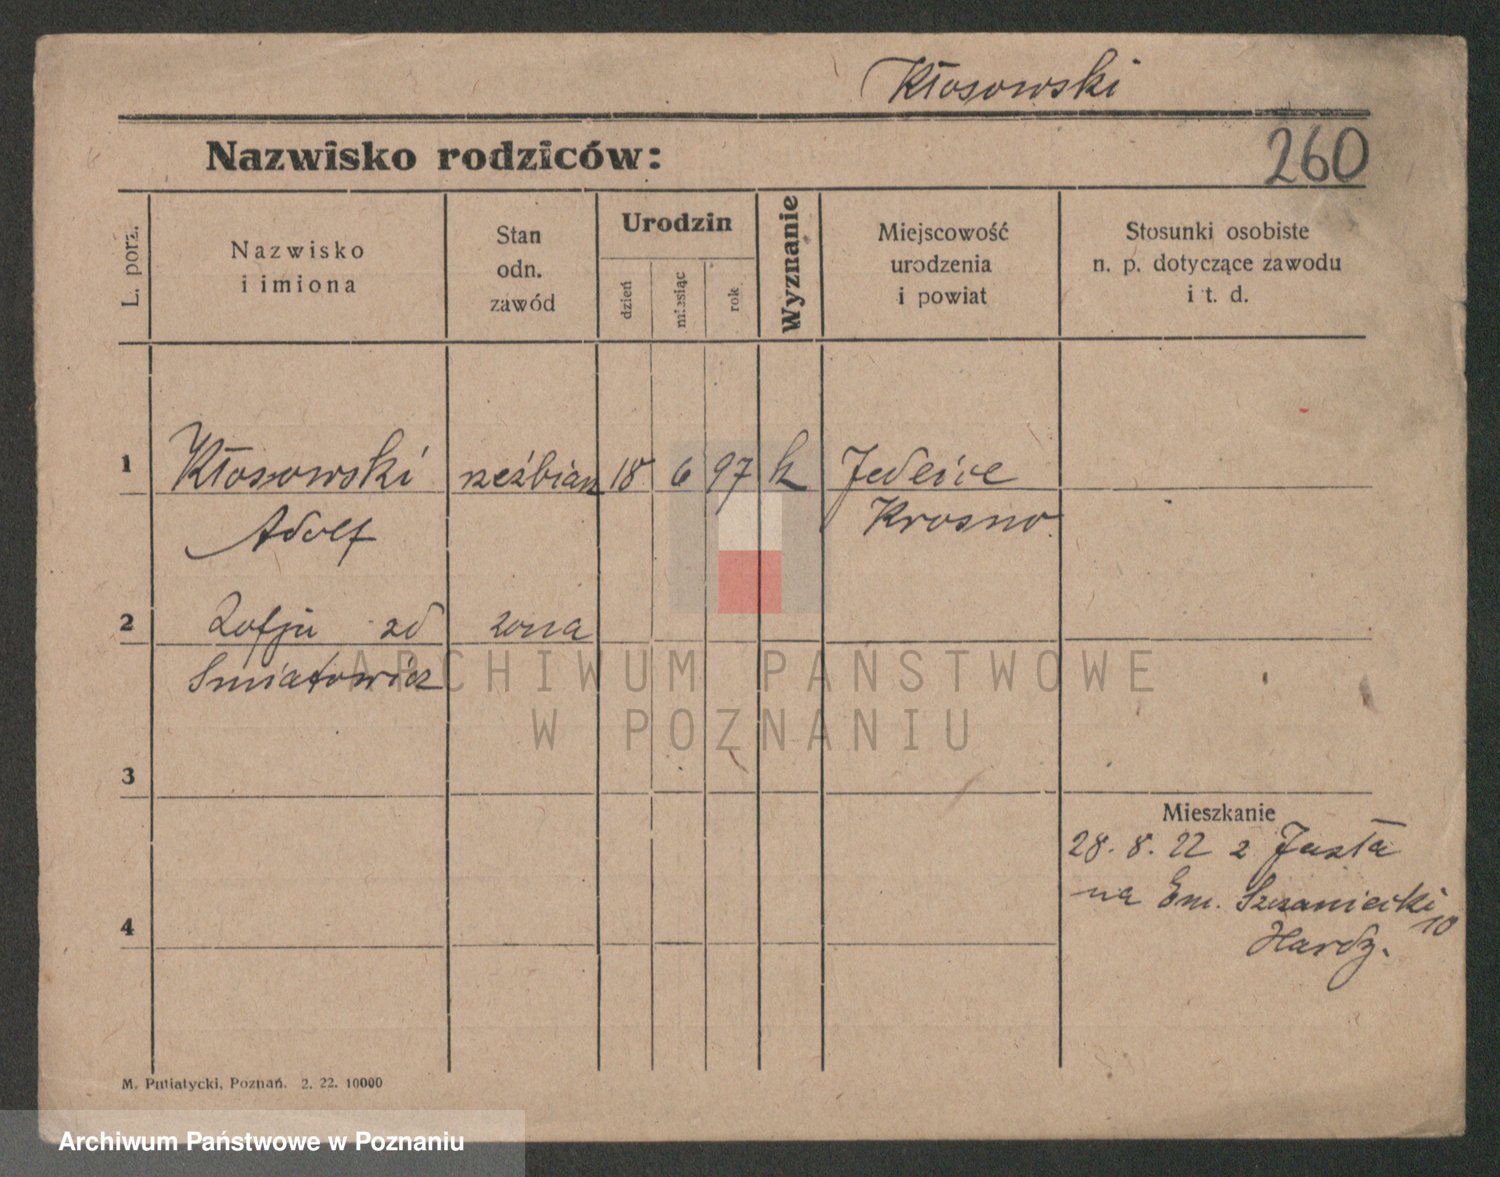 Kłosowski
260
Nazwisko rodziców:
L. porz.
Nazwisko
i imiona
Stan
odn.
zawód
Urodzin
dzień
miesiąc
rok
Wyznanie
Miejscowość
urodzenia
i powiat
Stosunki osobiste
n. p. dotyczące zawodu
i t. d.
1 Kłosowski rzeźbiarz 18 6 97 k Jedlice
Adolf Krosno
2 Zofja zd żona
Smiatowicz
ARCHIWUM PAŃSTWOWE
W POZNANIU
3
Mieszkanie
28. 8. 22 z Jasła
na Em. Szczaniecki
10
4
M. Putiatycki, Poznań. 2. 22. 10000
Archiwum Państwowe w Poznaniu